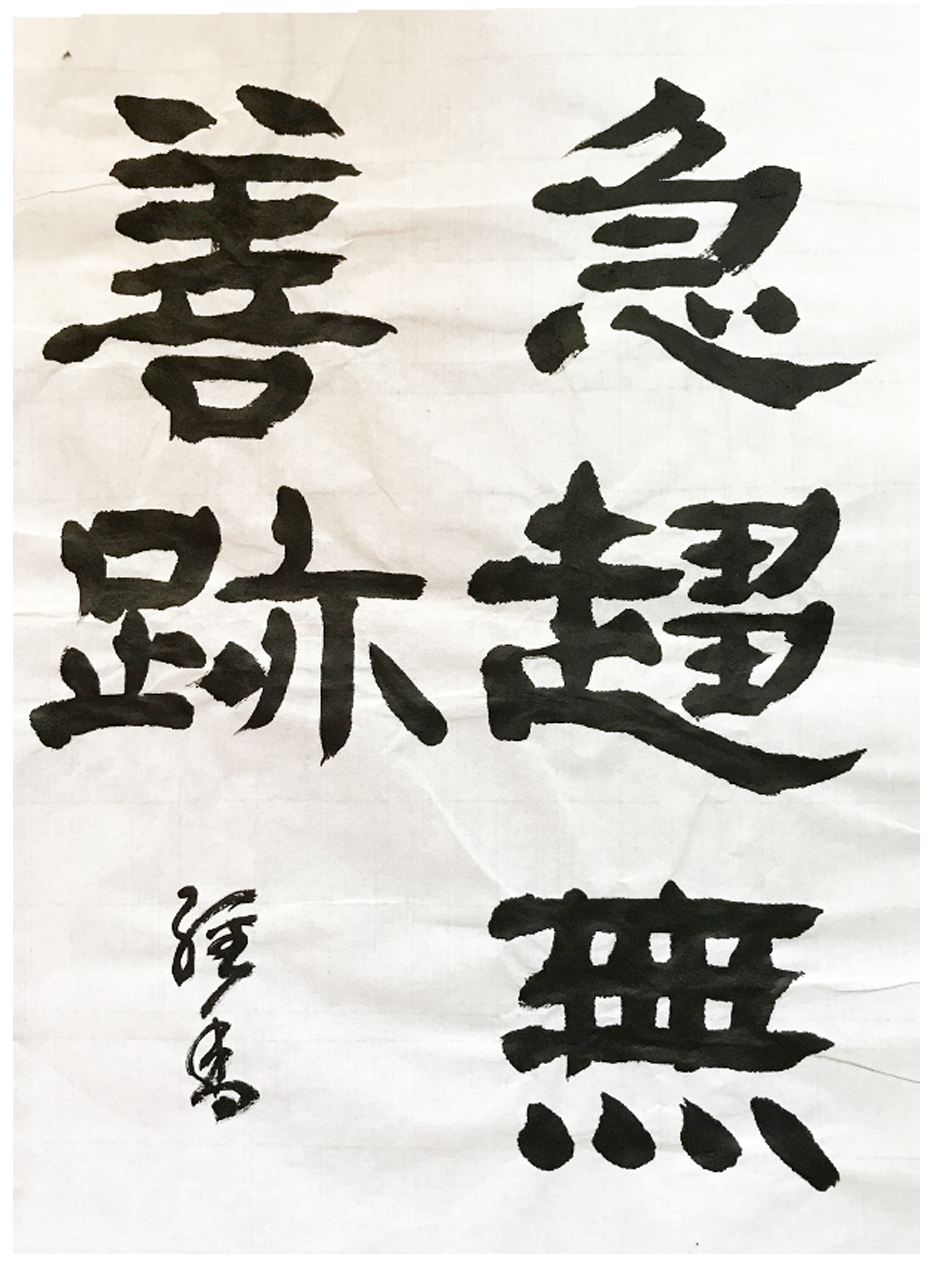 急趨無
善跡